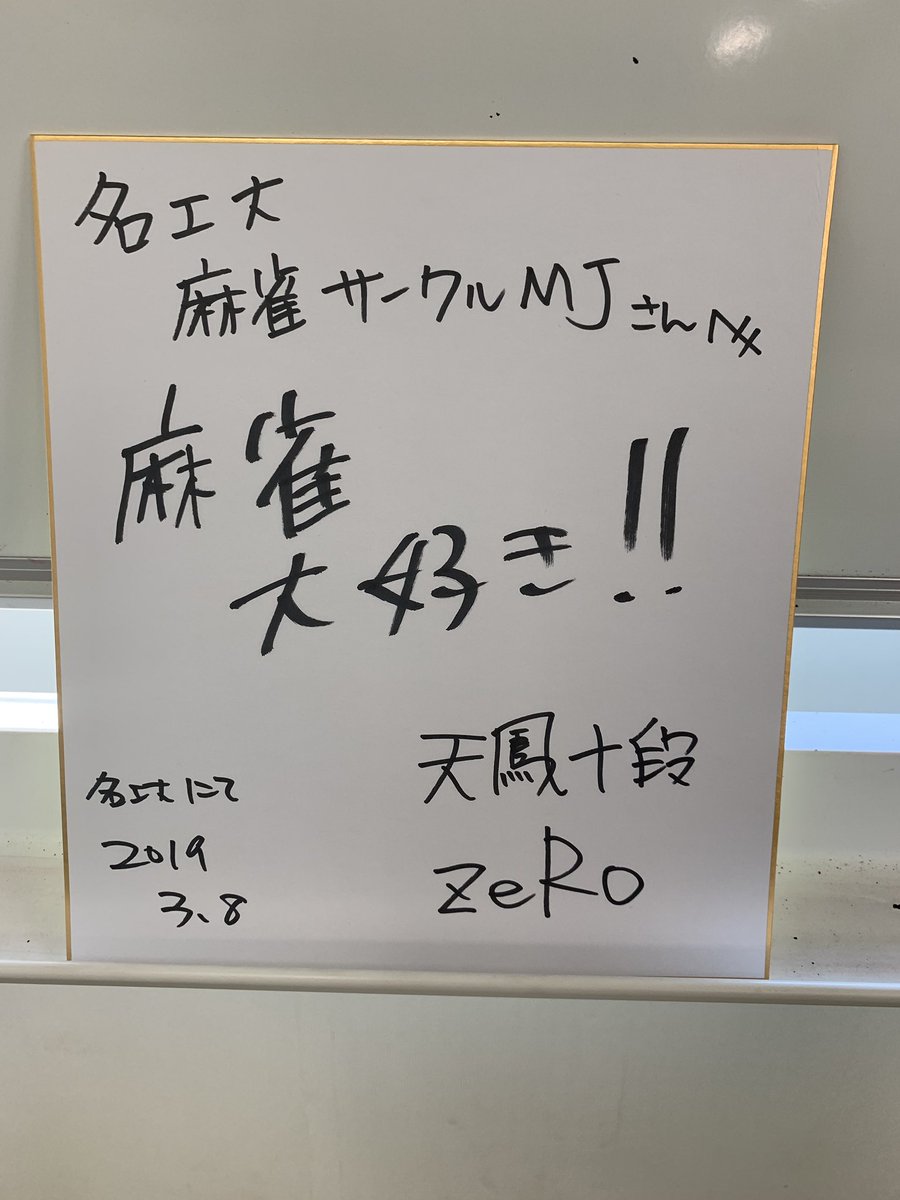 名工大
麻雀サークルMJさんへ
麻雀
大好き!!
天鳳十段
zeRo
名工大にて
2019
3、8